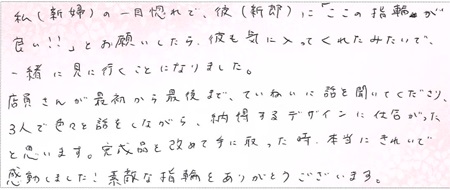 私(新婦)の一目惚れで、彼(新郎)に「ここの指輪が
良い!!」とお願いしたら、彼も気に入ってくれたみたいで、
一緒に見に行くことになりました。
店員さんが最初から最後まで、ていねいに話を聞いてくださり、
3人で色々と話をしながら、納得するデザインに仕上がった
と思います。完成品を改めて手に取った時、本当にきれいで
感動しました!素敵な指輪をありがとうございます。